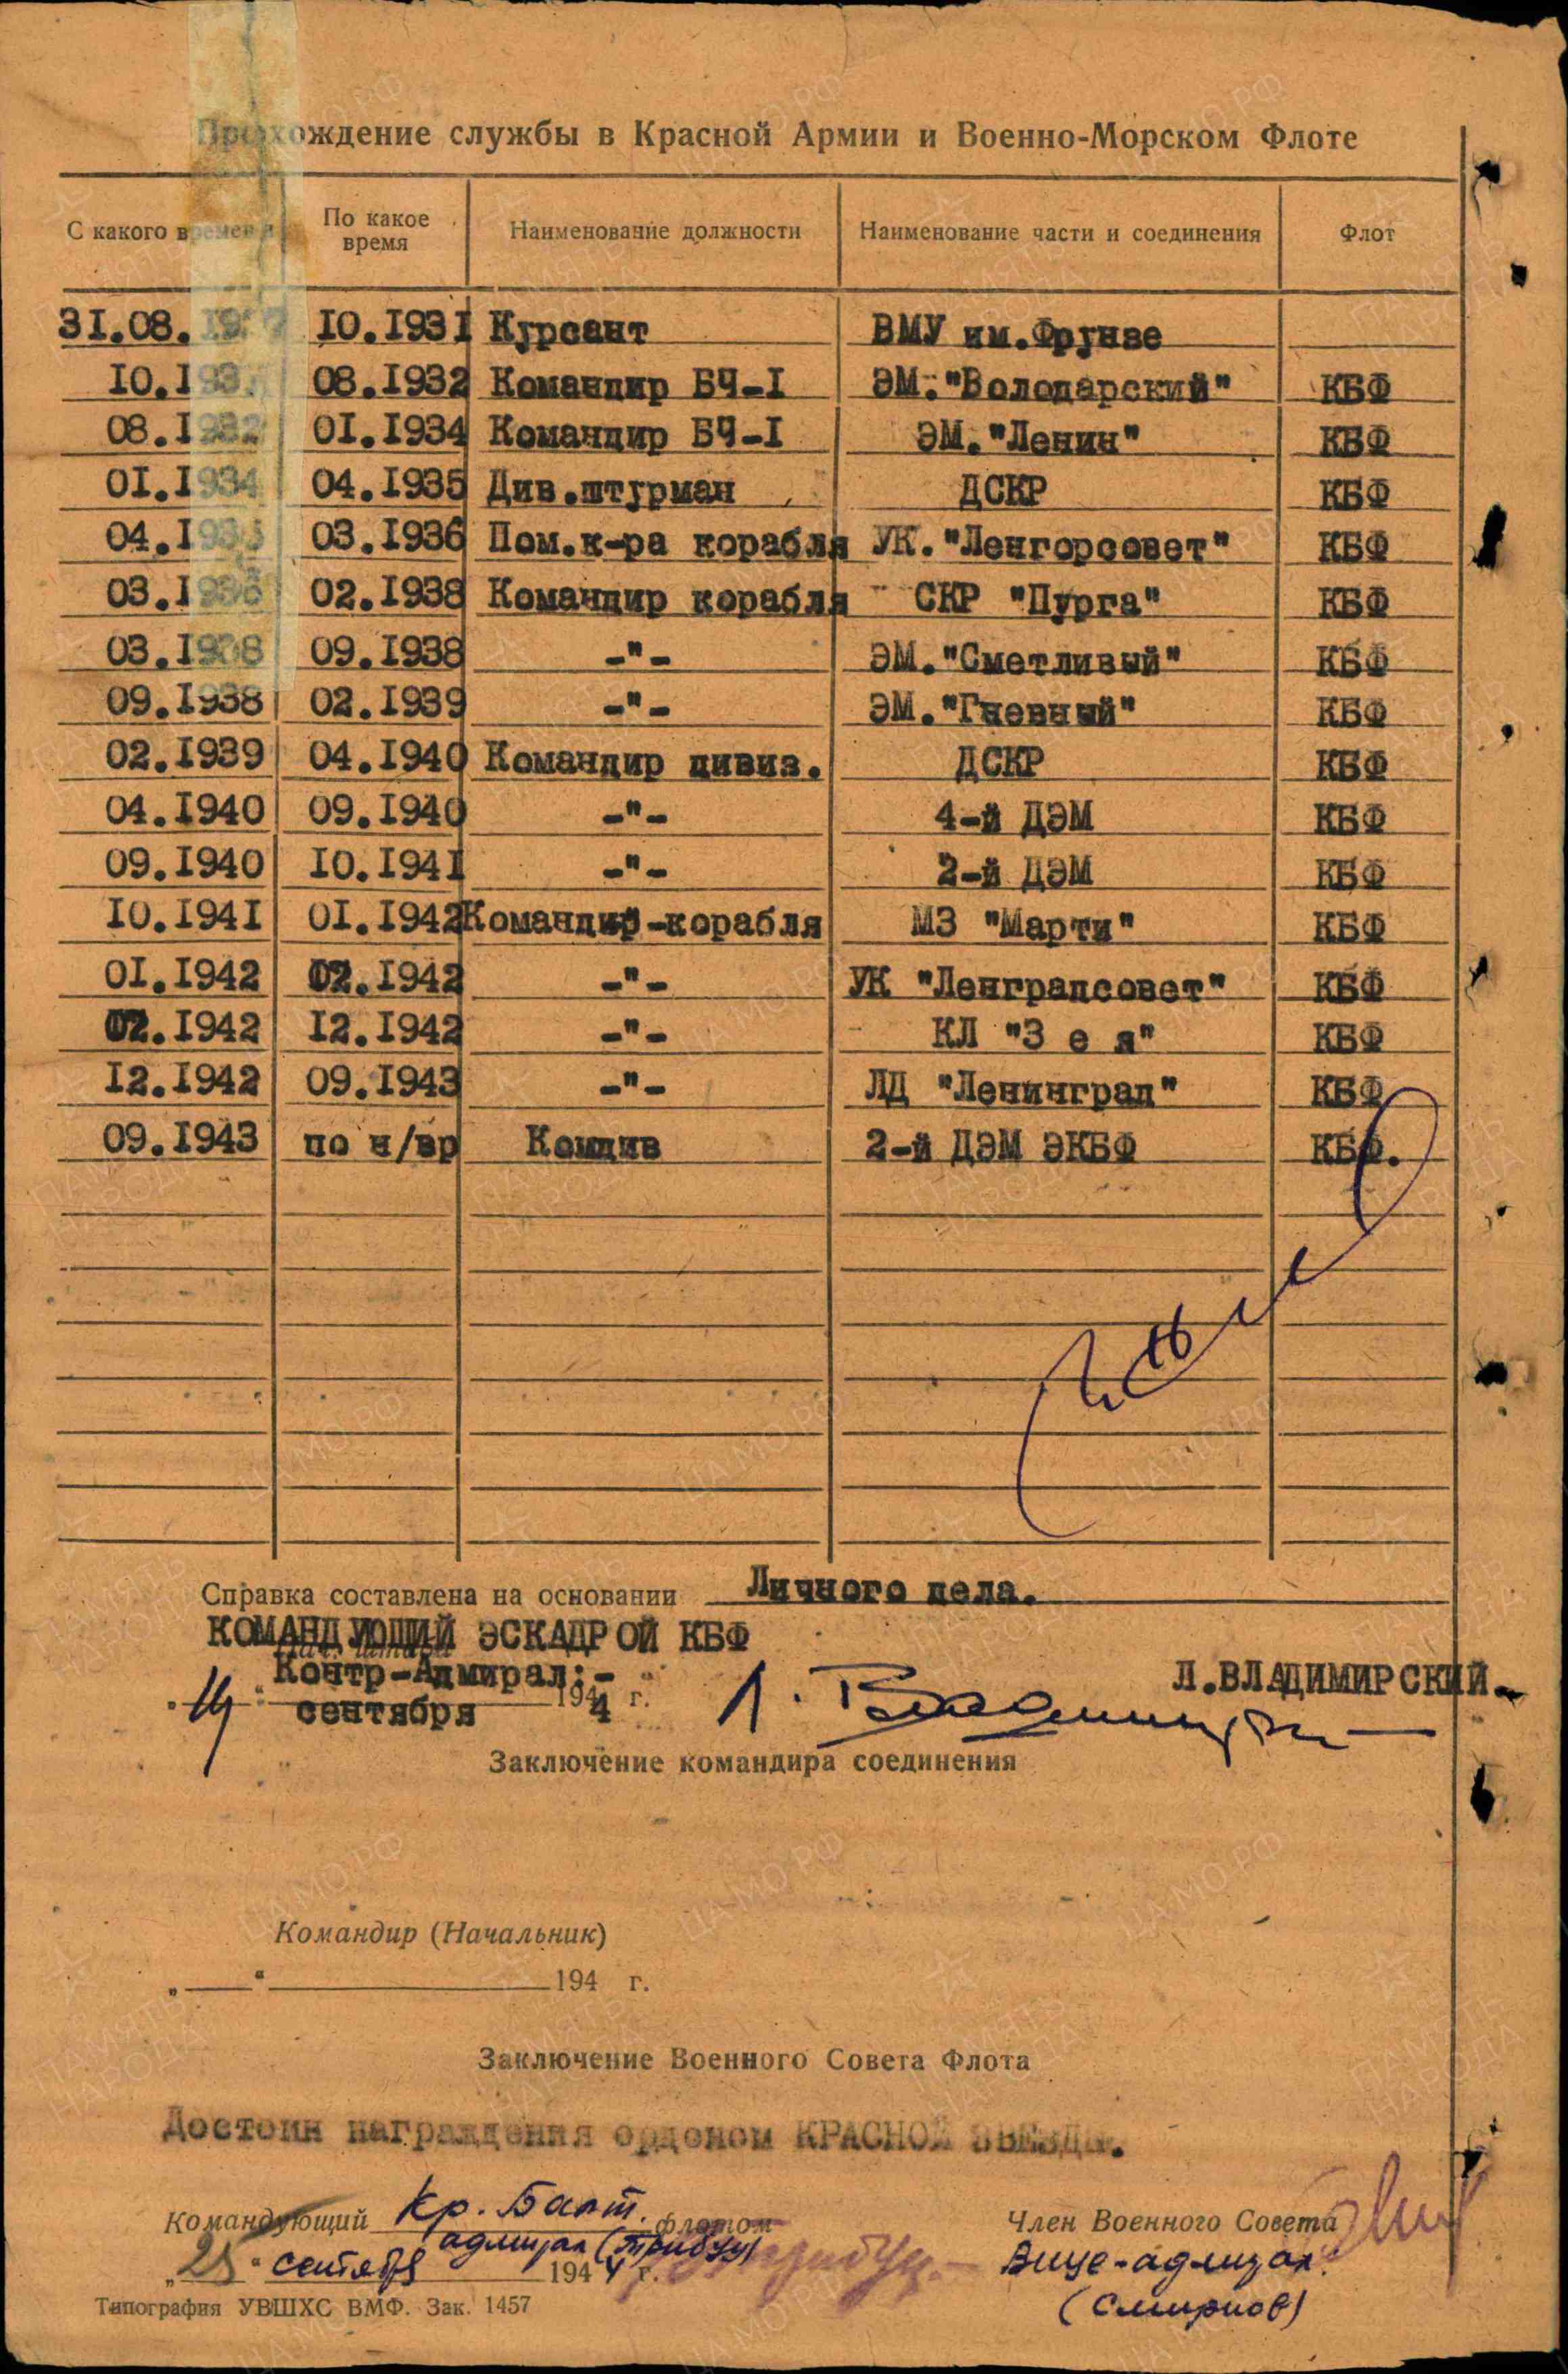 Прохождение службы в Красной Армии и Военно-Морском Флоте
С какого времени По какое время Наименование должности Наименование части и соединения Флот
31.08. 10.1931 Курсант ВМУ им.Фрунзе
10.1931 08.1932 Командир БЧ-I ЭМ."Володарский" КБФ
08.1932 01.1934 Командир БЧ-I ЭМ."Ленин" КБФ
01.1934 04.1935 Див.штурман ДСКР КБФ
04.1935 03.1936 Пом.к-ра корабля УК."Ленгорсовет" КБФ
03.1936 02.1938 Командир корабля СКР "Пурга" КБФ
03.1938 09.1938 -"- ЭМ."Сметливый" КБФ
09.1938 02.1939 -"- ЭМ."Гневный" КБФ
02.1939 04.1940 Командир дивиз. ДСКР КБФ
04.1940 09.1940 -"- 4-й ДЭМ КБФ
09.1940 10.1941 -"- 2-й ДЭМ КБФ
10.1941 01.1942 Командир-корабля МЗ "Марти" КБФ
01.1942 02.1942 -"- УК "Ленградсовет" КБФ
02.1942 12.1942 -"- КЛ "З е я" КБФ
12.1942 09.1943 -"- ЛД "Ленинград" КБФ
09.1943 по н/вр Комдив 2-й ДЭМ ЭКБФ КБФ.
Справка составлена на основании Личного дела.
КОМАНДУЮЩИЙ ЭСКАДРОЙ КБФ
Контр-Адмирал:- Л.ВЛАДИМИРСКИЙ.-
„14“ сентября 1944 г. Л. Владимирский
Заключение командира соединения
Командир (Начальник)
„ “ 194 г.
Заключение Военного Совета Флота
Достоин награждения орденом КРАСНОЙ ЗВЕЗДЫ.
Командующий Кр. Балт. флотом Член Военного Совета
адмирал (Трибуц) Вице-адмирал
„25“ сентября 1944 г. (Смирнов)
Типография УВШХС ВМФ. Зак. 1457
ПАМЯТЬ НАРОДА
ЦА МО РФ